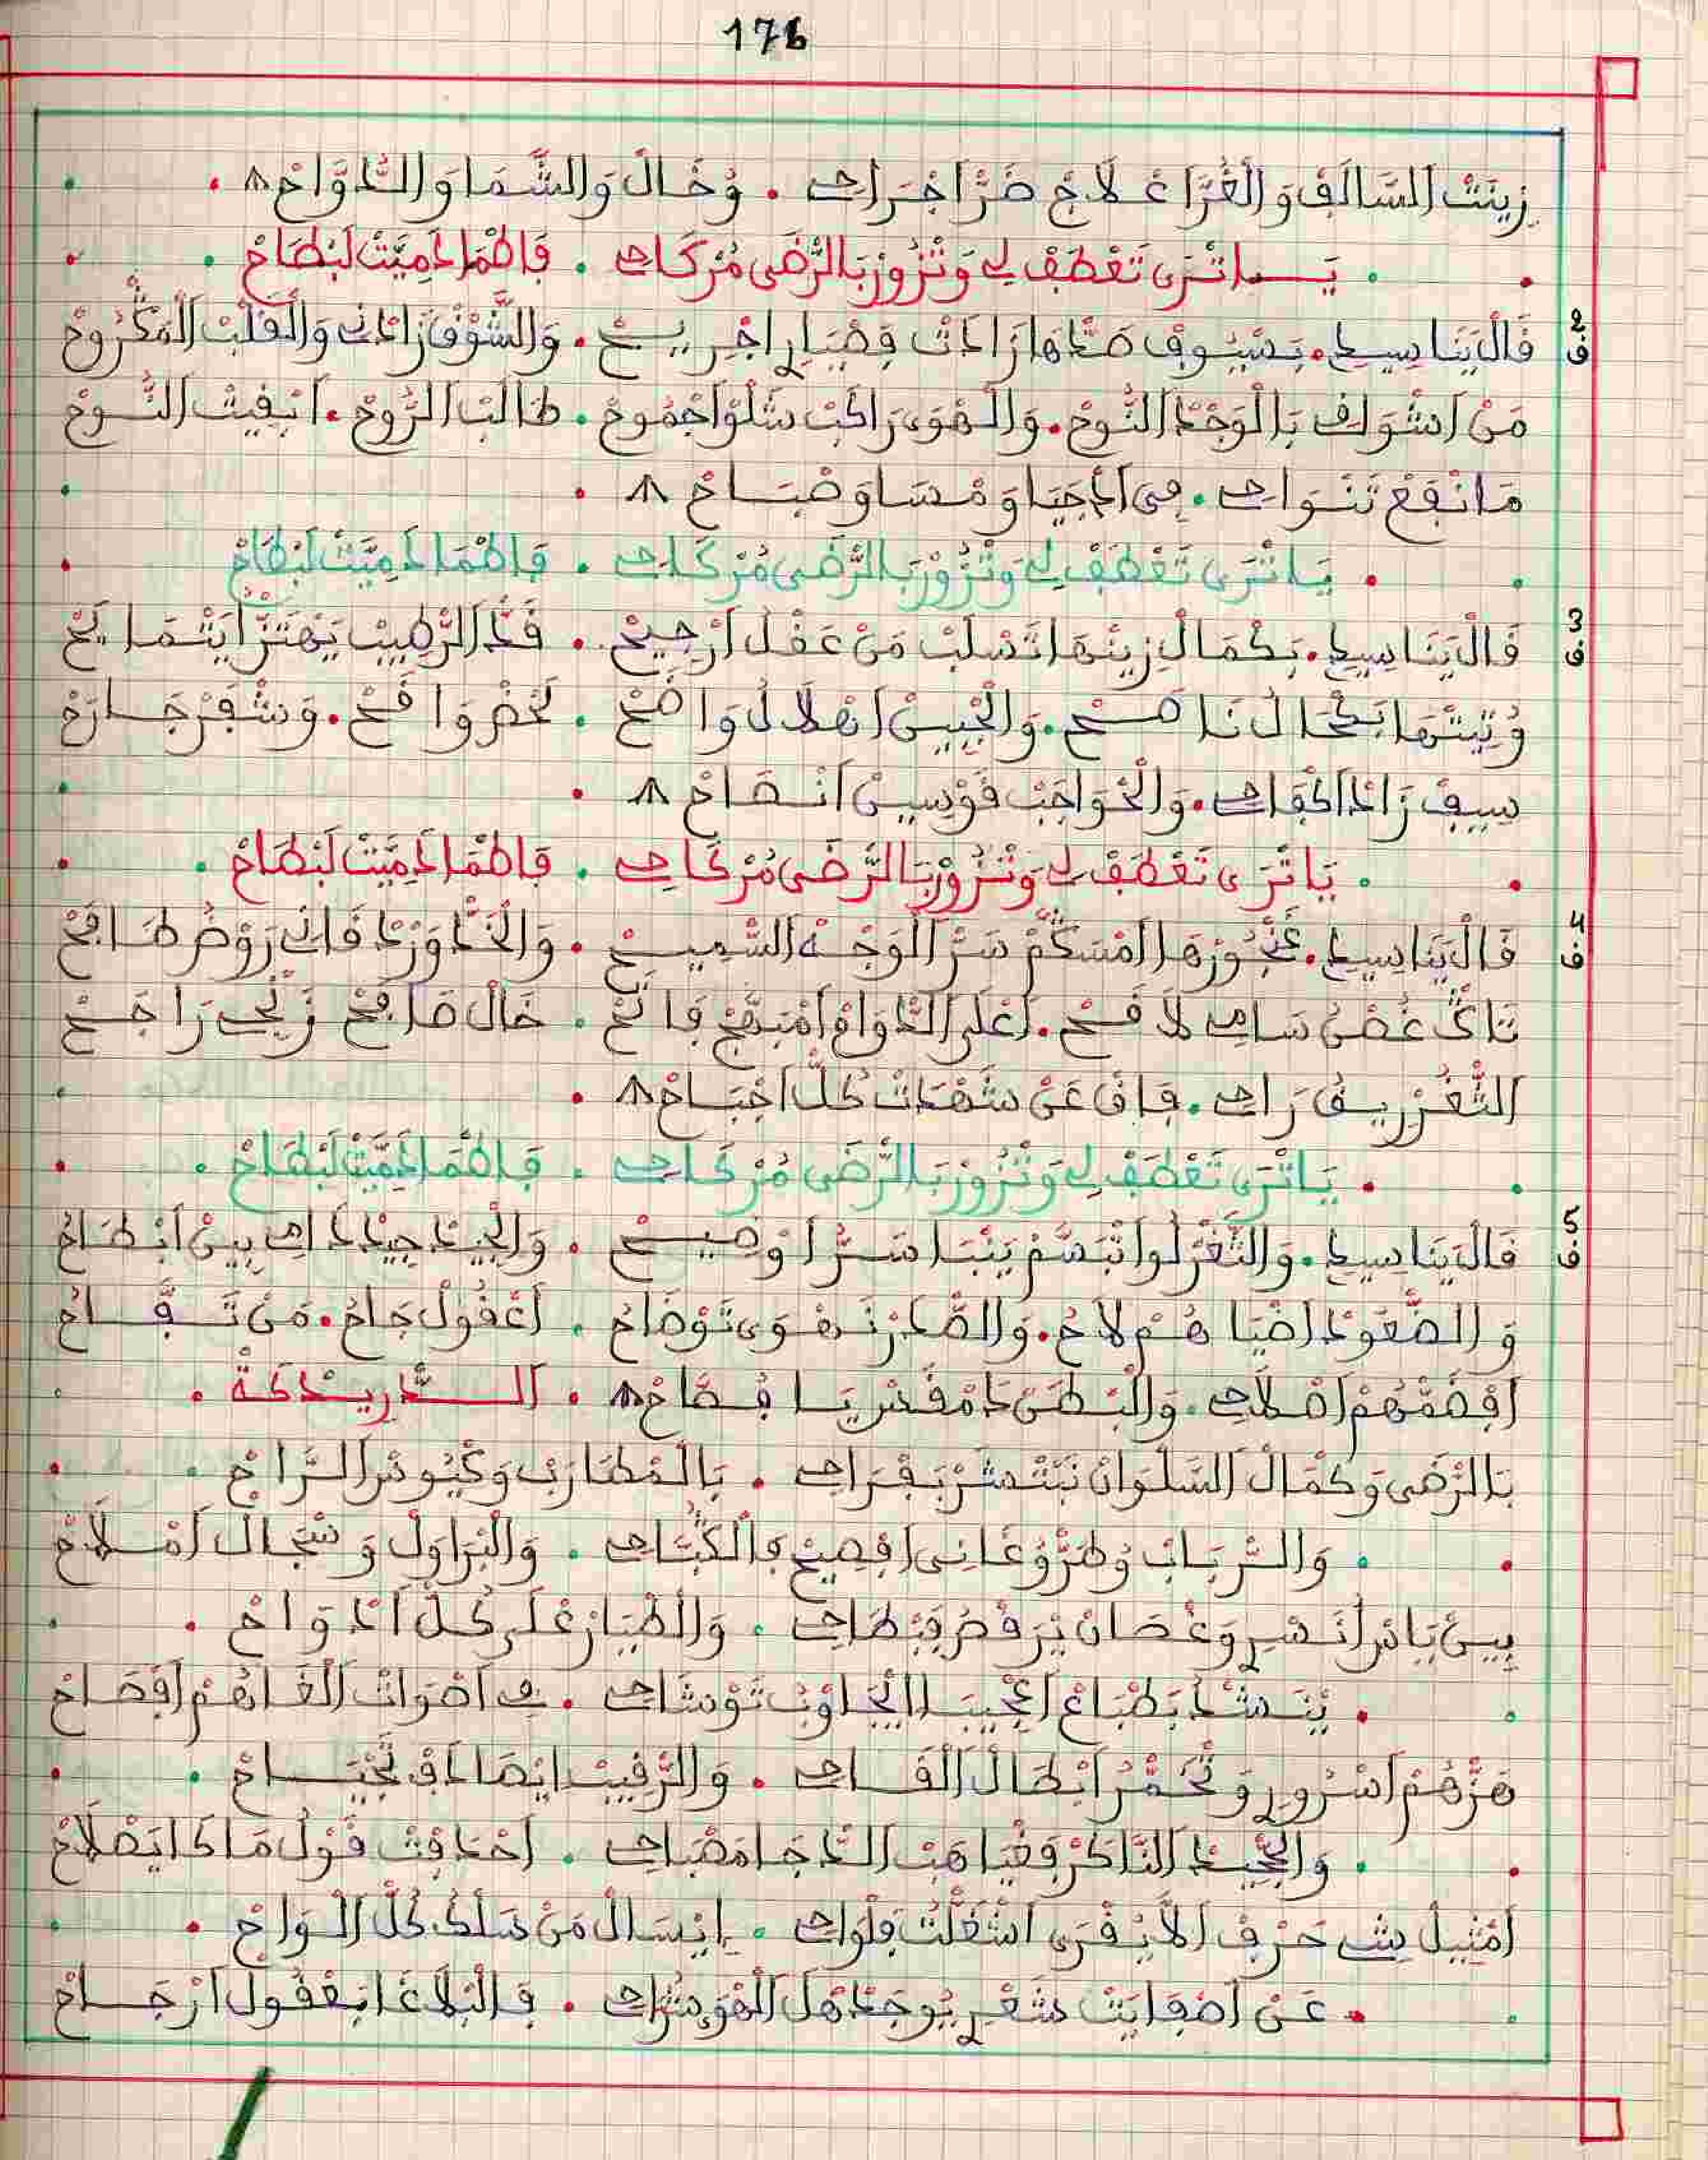 176
زِينَتْ السَّالَفْ وَالْغُرَّا عْلَاجْ ضَرَّ اجْرَاحِي . وُخَالْ وَالشَّمَا وَالدَّوَّاحْ
يَاتْرَى تَعْطَفْ لِي وَتْزُورْ بَالرّْضَى مُرْكَاحِي . فَاطْمَا دَمِيَّتْ لَبْطَاحْ
2 ف قَالْ يَنَاسِيدِي . بَسْيُوفْ صَدّْهَا زَادَتْ قَصْيَارِي اجْرِيحْ . وَالشُّوقْ زَادْنِي وَالْقَلْبْ الْمَكْرُوحْ
مَنْ اشْوَاقْ بَالْوَجْدْ النُّوحْ . وَالْهْوَى رَاكَبْ شَلْوْ اجْمُوحْ . طَالَبْ الرُّوحْ . ابْقِيتْ النُّوحْ
مَا نْفَعْ تَنْوَاحِي . فِي ادْجْيَا وَمْسَا وَصْبَاحْ
يَاتْرَى تَعْطَفْ لِي وَتْزُورْ بَالرّْضَى مُرْكَاحِي . فَاطْمَا دَمِيَّتْ لَبْطَاحْ
3 ف قَالْ يَنَاسِيدِي . بَكْمَالْ زِينْهَا تَسْلَبْ مَنْ عَقْلُ ارْجِيحْ . قَدّْ الرّْطِيبْ يَهْتَزّْ ايَتْمَايَحْ
وُتِيتْهَا بَكْحَالُ نَاصَحْ . وَالْجْبِينْ اهْلَالُ وَاضَحْ . لَحْضْ وَاقَحْ . وَشْفَرْ جَارَحْ
سِيفْ زَادْ اكْفَاحِي . وَالْحْوَاجَبْ قَوْسِينْ
يَاتْرَى تَعْطَفْ لِي وَتْزُورْ بَالرّْضَى مُرْكَاحِي . فَاطْمَا دَمِيَّتْ لَبْطَاحْ
4 ف قَالْ يَنَاسِيدِي . غُنْجُورْهَا امْسَكَّمْ سَرّْ الْوَجْهْ السّْمِيحْ . وَالْخَدّْ وَرْدْ قَانِي رَوْضُ طَافَحْ
تَاكْ غُصْنُ سَامِي لَاقَحْ . اعْلَى الدّْوَامْ امْبَهَّجْ فَاتَحْ . خَالْ صَافَحْ زَنْجِي رَاجَحْ
الثّْغَرْ رِيقُ رَاحِي . فَاقْ عَنْ شَهْدَاتْ كُلّْ اجْبَاحْ
يَاتْرَى تَعْطَفْ لِي وَتْزُورْ بَالرّْضَى مُرْكَاحِي . فَاطْمَا دَمِيَّتْ لَبْطَاحْ
5 ف قَالْ يَنَاسِيدِي . وَالثّْغَرْ لُو اتْبَسَّمْ يَنْبَا سَرُّ اوْضِيحْ . وَالْجِيدْ جِيدْ دَامِي بِينْ ابْطَاحْ
وَالصّْعُودْ اضْيَاهُمْ لَاحْ . وَالصّْدَرْ نَهْوَى تَوْضَاحُ . اعْقُولْ جَاحْ . مَنْ تَفَّاحُ
افْضَمّْهُمْ اصْلَاحِي . وَالْبْطَنْ دَامْقَسْ يَا فُصَّاحْ . الدَّرِيدْكَةْ
بَالرّْضَى وَكْمَالْ السَّلْوَانْ نَبْتْشَرْ بَفْرَاحِي . بَالْمْطَارَبْ وَكْيُوسْ الرَّاحْ
وَالرّْبَابْ وُطَرُّ وْغَانِي افْصِيحْ فَالْكُبَّاحِي . وَالْبْرَاوَلْ وَسْجَالْ امْلَاحْ
بِينْ يَاسْ النَسْرِي وَغْصَانْ يَرْقْصُ فَبْطَاحِي . وَالْطْيَارْ عْلَى كُلّْ ادْوَاحْ
يَنَشْدُ بَطْبَاعْ اعْجِيبَا انْجَاوْبُ تَوْشَاحِي . فِي اصْوَاتْ الْغَاهُمْ افْصَاحْ
هَزّْهُمْ اسْرُورِي وَتْحَمَّرُ ابْطَالْ الْقَاحِي . وَالرّْقِيبْ ايْضَادَفْ تَجْيَاحْ
وَالْجْحِيدْ النَّاكَرْ فَغْيَاهَبْ الدّْجَا مَصْبَاحِي . احْدَافْتْ قَوْلُ مَاكَا يَصْلَاحْ
امْثِيلْ شِي حَرْفْ الَا يُقْرَى اشْغَلْتْ فَلْوَاحِي . ايْسَالْ مَنْ سْلَكْ كُلّْ الْوَاحْ
عَنْ اصْفَايَتْ شَعْرِي يُوجَدْ هَلْ الْهْوَى شُرَّاحِي . فَالْبْلَاغَا بَعْقُولْ ارْجَاحْ